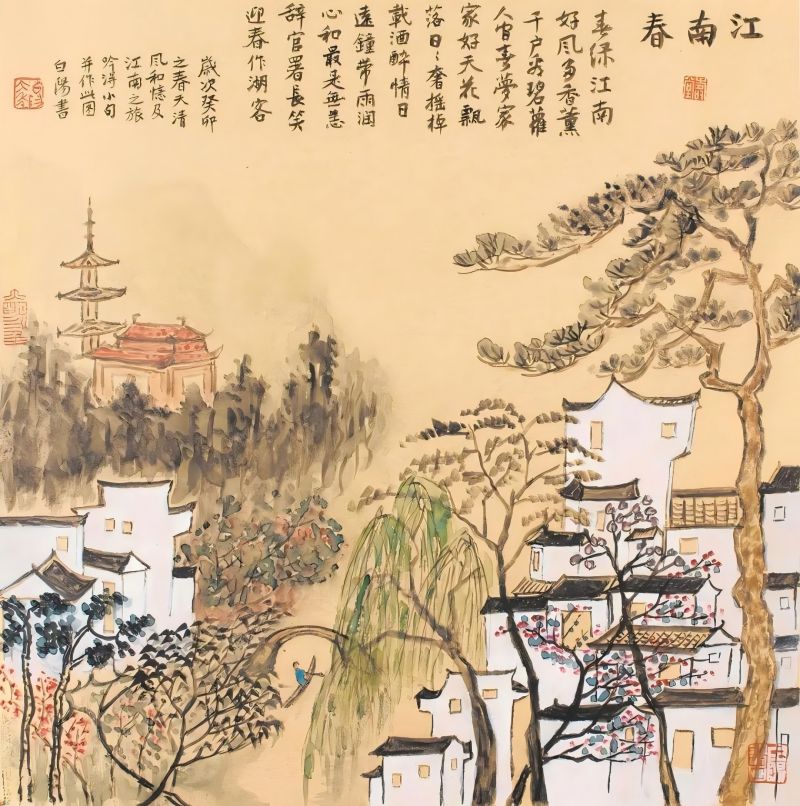 江南春
春绿江南
好风多香薰
千户秀碧蘿
人宵春夢家
家好天花飄
落日々奢摇棹
載酒醉情日
遠鐘带雨润
心和最是無恙
辞官署長笑
迎春作湖客
歲次癸卯
之春天清
风和憶及
江南之旅
吟得小句
并作此图
白陽書